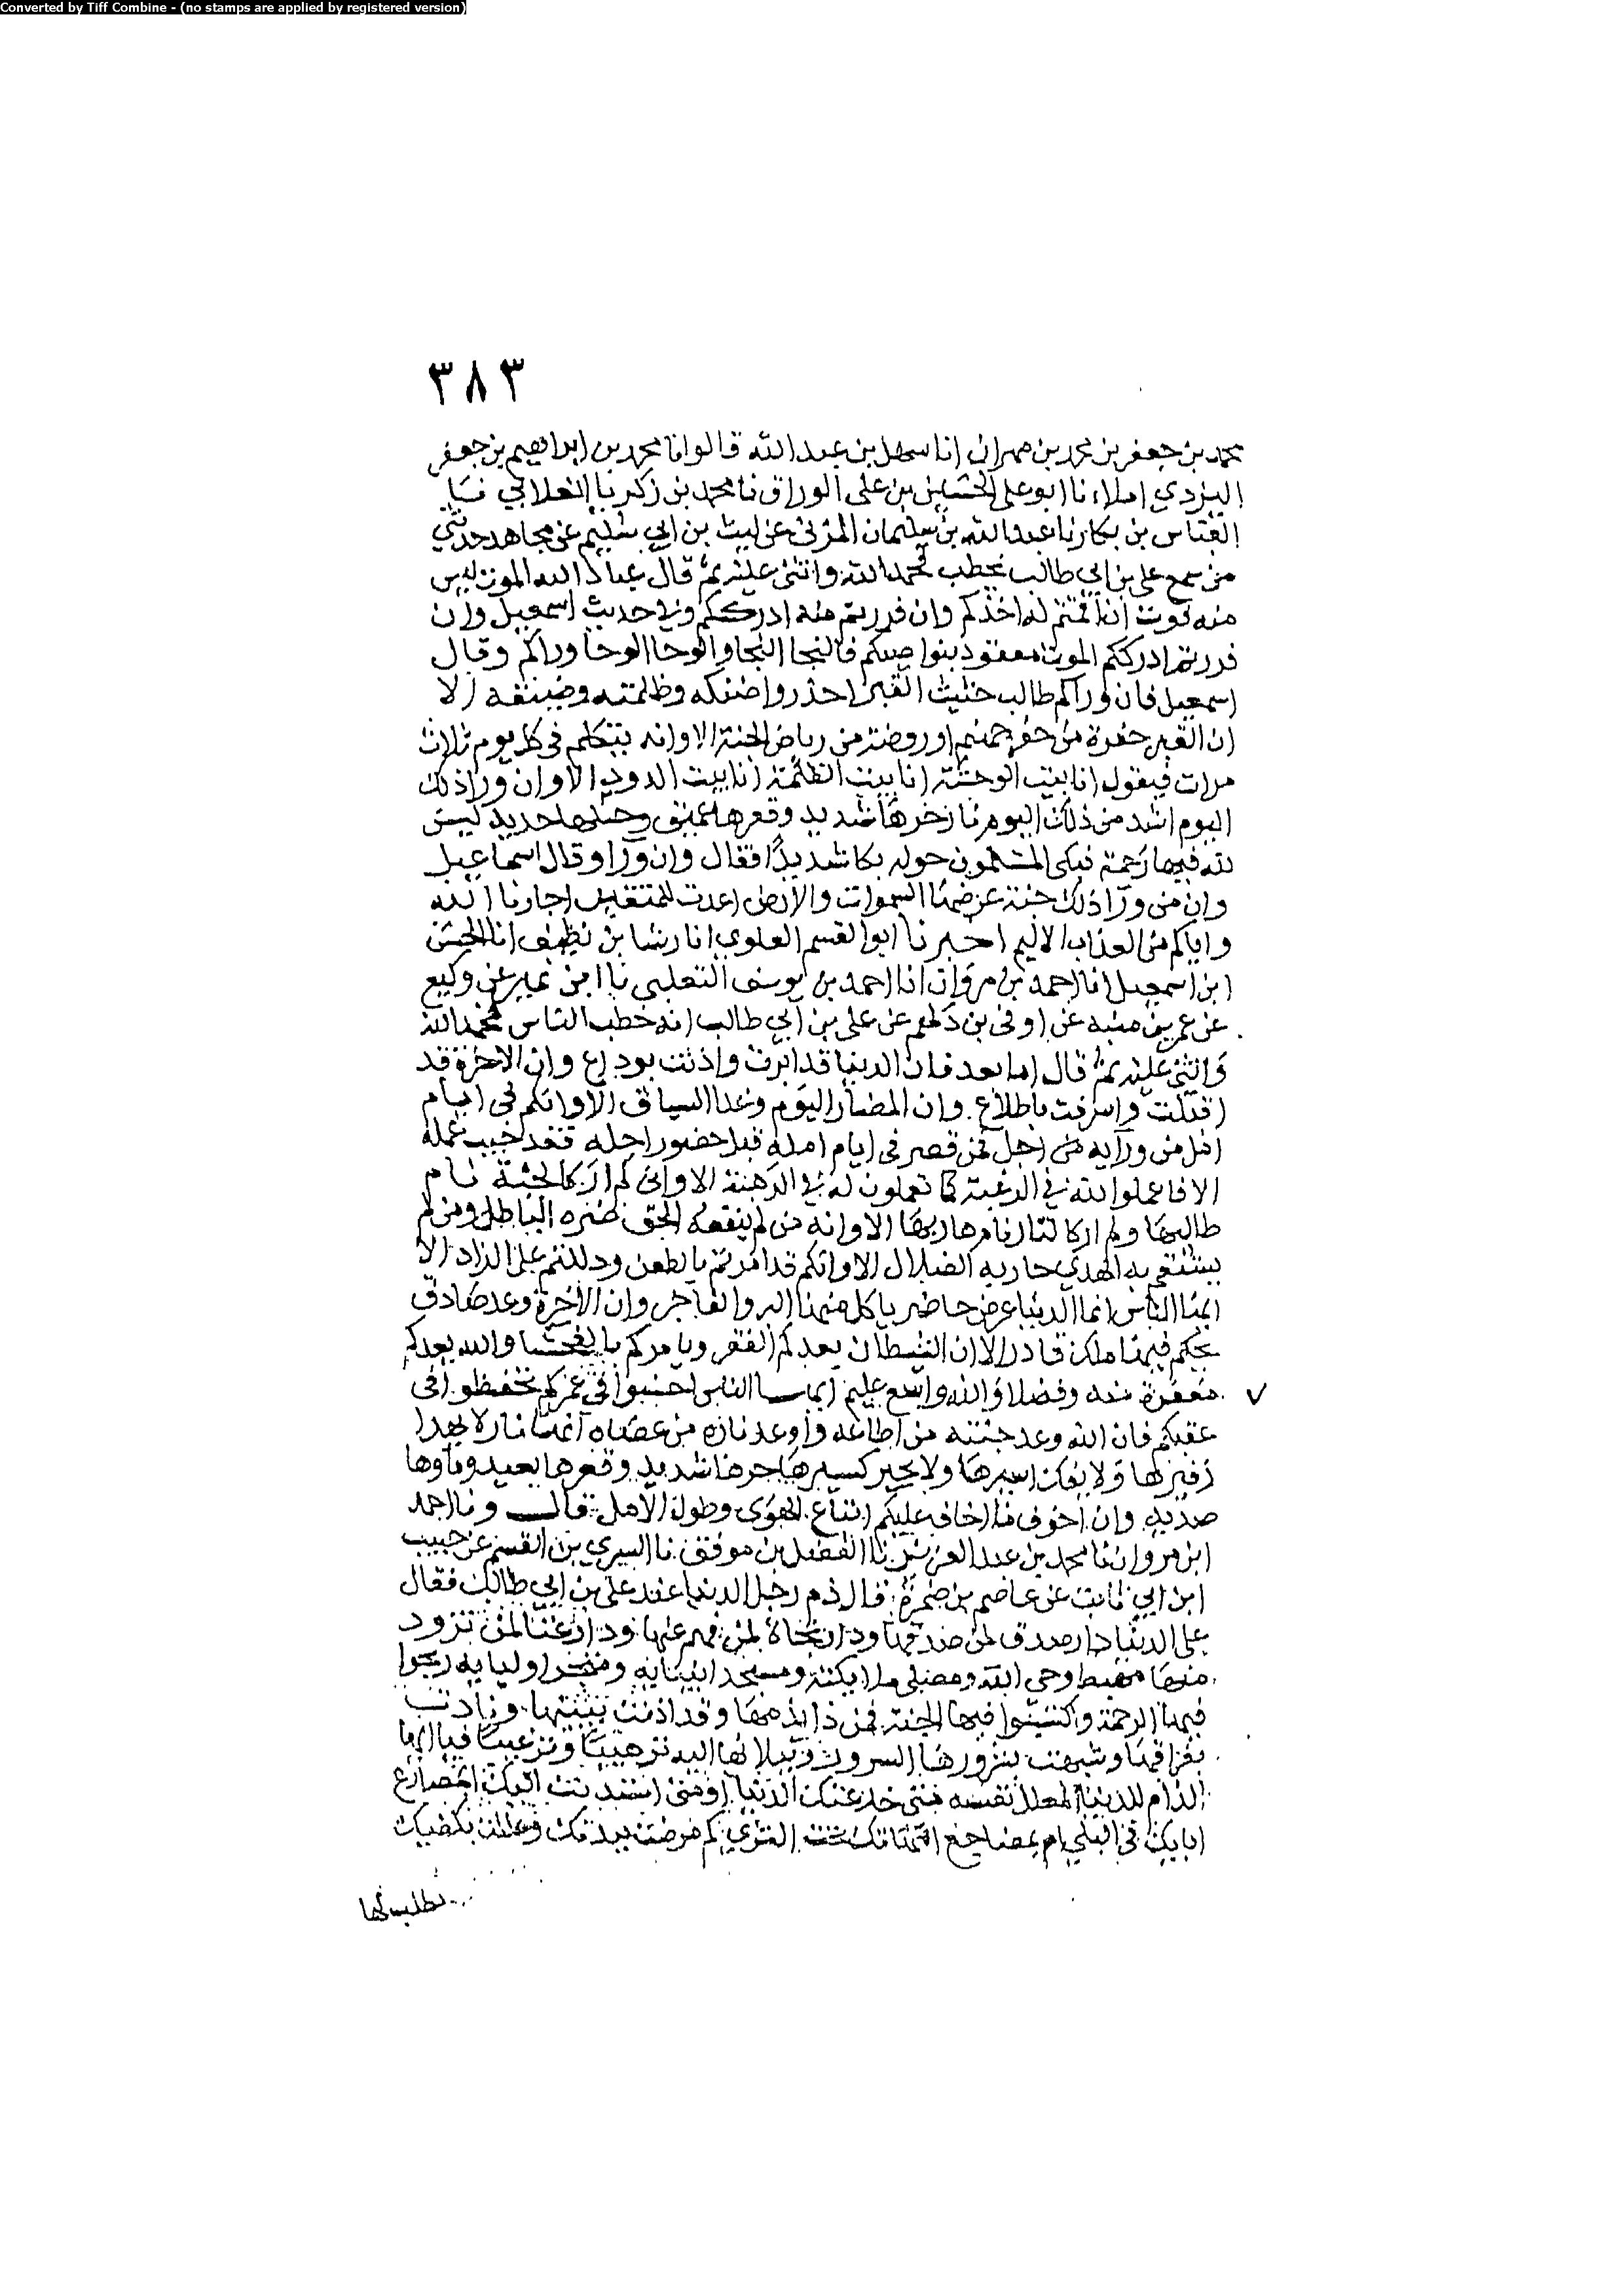 Converted by Tiff Combine - (no stamps are applied by registered version)
٣٨٣
محمد بن جعفر بن محمد بن مهران انا سهل بن عبد الله قالوا نا محمد بن ابراهيم بن جعفر
اليزدي املاء نا ابو علي الحسين بن علي الوراق نا محمد بن زكريا الغلابي نا
العباس بن بكار نا عبد الله بن سليمان المزني عن ليث بن ابي سليم عن مجاهد حدثني
من سمع علي بن ابي طالب يخطب فحمد الله واثنى عليه ثم قال عباد الله الموت ليس
منه فوت ان اقمتم له اخذكم وان فررتم منه ادرككم وفي حديث اسمعيل وان
فررتم ادرككم الموت معقود بنواصيكم فالنجا النجا والوحا الوحا وراكم وقال
اسمعيل فان وراكم طالب حثيث القبر احذروا ضنكه وظلمته وضيقه الا
ان القبر حفرة من حفر جهنم او روضة من رياض الجنة الا وانه يتكلم في كل يوم ثلاث
مرات فيقول انا بيت الوحشة انا بيت الظلمة انا بيت الدود الا وان ورا ذلك
اليوم اشد من ذلك اليوم نار حرها شديد وقعرها عميق وحليها حديد ليس
لله فيها رحمة فبكى المسلمون حوله بكا شديدا فقال وان ورا وقال اسماعيل
وان من ورا ذلك جنة عرضها السموات والارض اعدت للمتقين اجارنا الله
واياكم من العذاب الاليم اخبرنا ابو القسم العلوي انا رشا بن نظيف انا الحسن
ابن اسمعيل انا احمد بن مروان انا احمد بن يوسف التغلبي نا ابن نمير عن وكيع
عن عمر بن منبه عن اوفى بن دلهم عن علي بن ابي طالب انه خطب الناس فحمد الله
واثنى عليه ثم قال اما بعد فان الدنيا قد ادبرت واذنت بوداع وان الاخرة قد
اقبلت واشرفت باطلاع وان المضمار اليوم وغدا السباق الا وانكم في ايام
امل من ورايه من اجل فمن قصر في ايام امله قبل حضور اجله فقد خيب عمله
الا فاعملوا لله في الرغبة كما تعملون له في الرهبة الا واني لم ار كالجنة نام
طالبها ولم ار كالنار نام هاربها الا وانه من لم ينفعه الحق ضره الباطل ومن لم
يستقم به الهدى حار به الضلال الا وانكم قد امرتم بالظعن ودللتم على الزاد الا
ايها الناس انما الدنيا عرض حاضر ياكل منها البر والفاجر وان الاخرة وعد صادق
يحكم فيها ملك قادر الا ان الشيطان يعدكم الفقر ويامركم بالفحشا والله يعدكم
مغفرة منه وفضلا والله واسع عليم ايها الناس احسنوا في عمركم تحفظوا في
عقبكم فان الله وعد جنته من اطاعه واوعد ناره من عصاه انها نار لا يهدا
زفيرها ولا يفك اسيرها ولا يجبر كسيرها حرها شديد وقعرها بعيد وماوها
صديد وان اخوف ما اخاف عليكم اتباع الهوى وطول الامل قال ونا احمد
ابن مروان نا محمد بن عبد العزيز نا الفضل بن موفق نا السري بن القسم عن حبيب
ابن ابي ثابت عن عاصم بن ضمرة قال ذم رجل الدنيا عند علي بن ابي طالب فقال
علي الدنيا دار صدق لمن صدقها ودار نجاة لمن فهم عنها ودار غنا لمن تزود
منها مهبط وحي الله ومصلى ملايكته ومسجد انبيايه ومتجر اوليايه ربحوا
فيها الرحمة واكتسبوا فيها الجنة فمن ذا يذمها وقد اذنت ببينها ونادت
بفراقها وشبهت بسرورها السرور وببلائها اليه ترهيبا وترغيبا فيا ايها
الذام للدنيا المعلل نفسه متى خدعتك الدنيا او متى استذمت اليك ابمصارع
ابايك في البلى ام بمضاجع امهاتك تحت الثرى كم مرضت بيديك وعللت بكفيك
تطلب لها